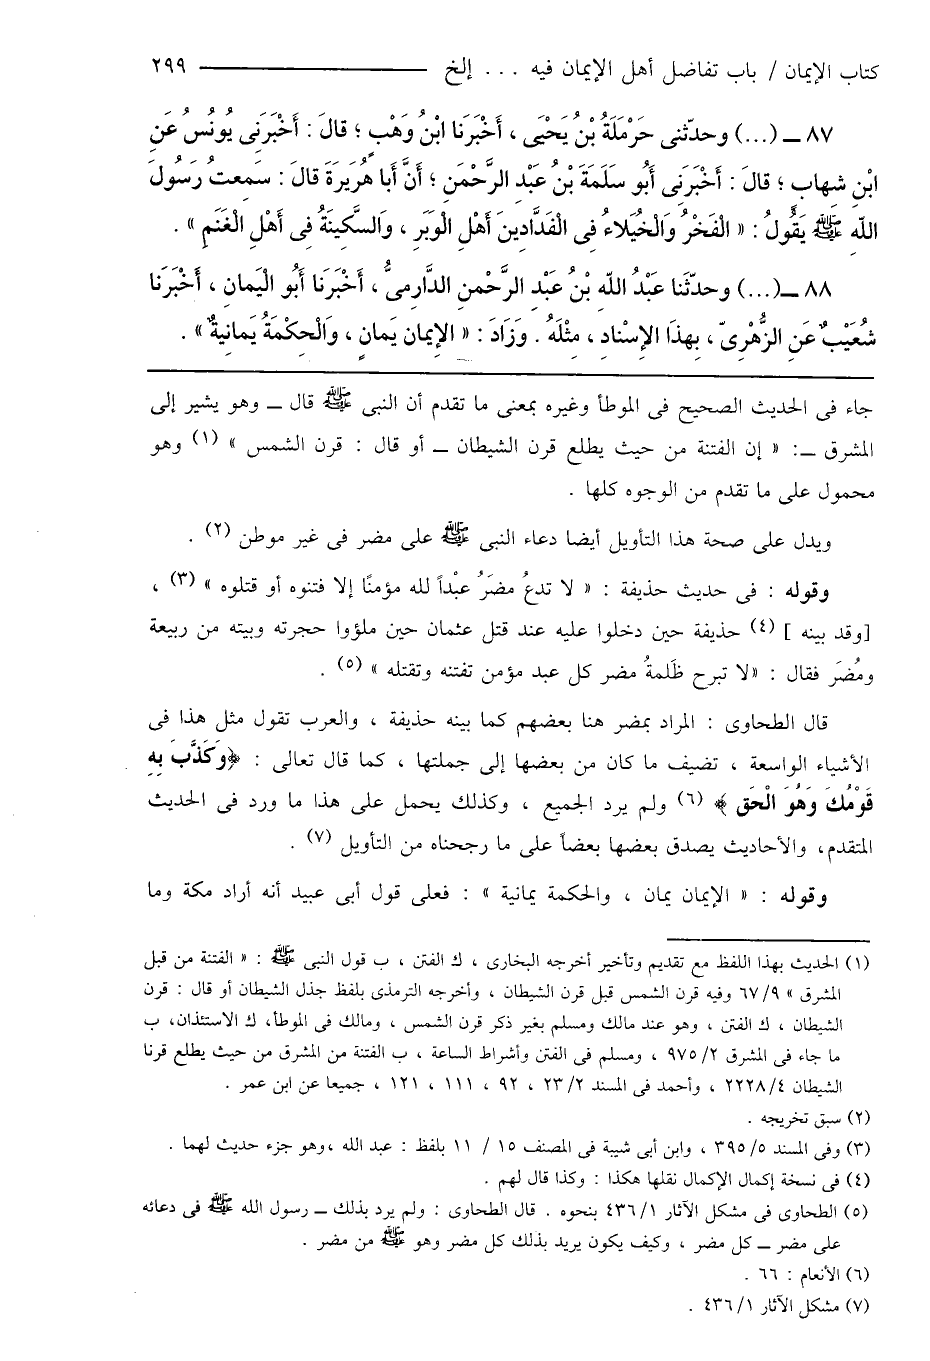 كتاب الإيمان / باب تفاضل أهل الإيمان فيه ... إلخ ــــــــ ٢٩٩
٨٧ ــ (...) وحدّثنى حَرْمَلَةُ بْنُ يَحْيَى ، أَخْبَرَنَا ابْنُ وَهْبٍ ؛ قالَ : أَخْبَرَنى يُونُسُ عَنِ
ابْنِ شهابٍ ؛ قالَ : أَخْبَرَنِى أَبُو سَلَمَةَ بْنُ عَبْدِ الرَّحْمنِ ؛ أَنَّ أَبا هُرَيْرَةَ قالَ : سَمِعتُ رَسُولَ
اللّهِ ﷺ يَقُولُ : « الْفَخْرُ وَالْخُيَلاءُ فى الْفَدَّادينَ أَهْلِ الْوَبَرِ ، وَالسَّكِينَةُ فِى أَهْلِ الْغَنَمِ » .
٨٨ ــ(...) وحدّثَنا عَبْدُ اللّهِ بْنُ عَبْدِ الرَّحْمنِ الدَّارِمىُّ ، أَخْبَرَنا أَبُو الْيَمانِ ، أَخْبَرَنا
شُعَيْبٌ عَنِ الزُّهْرِىّ ، بِهذَا الإِسْنادِ ، مثْلَهُ . وَزَادَ : « الإِيمَانُ يَمَانٍ ، وَالْحِكْمَةُ يَمانيةٌ » .
جاء فى الحديث الصحيح فى الموطأ وغيره بمعنى ما تقدم أن النبى ﷺ قال ــ وهو يشير إلى
المشرق ــ: « إن الفتنة من حيث يطلع قرن الشيطان ــ أو قال : قرن الشمس » (١) وهو
محمول على ما تقدم من الوجوه كلها .
ويدل على صحة هذا التأويل أيضا دعاء النبى ﷺ على مضر فى غير موطن (٢) .
وقوله : فى حديث حذيفة : « لا تدعُ مضَرُ عبْداً لله مؤمنًا إلا فتنوه أو قتلوه » (٣) ،
[وقد بينه ] (٤) حذيفة حين دخلوا عليه عند قتل عثمان حين ملؤوا حجرته وبيته من ربيعة
ومُضَر فقال : «لا تبرح ظَلمةُ مضر كل عبد مؤمن تفتنه وتقتله » (٥) .
قال الطحاوى : المراد بمضر هنا بعضهم كما بينه حذيفة ، والعرب تقول مثل هذا فى
الأشياء الواسعة ، تضيف ما كان من بعضها إلى جملتها ، كما قال تعالى : ﴿وَكَذَّبَ بِهِ
قَوْمُكَ وَهُوَ الْحَق ﴾ (٦) ولم يرد الجميع ، وكذلك يحمل على هذا ما ورد فى الحديث
المتقدم، والأحاديث يصدق بعضها بعضاً على ما رجحناه من التأويل (٧) .
وقوله : « الإيمان يمان ، والحكمة يمانية » : فعلى قول أبى عبيد أنه أراد مكة وما
(١) الحديث بهذا اللفظ مع تقديم وتأخير أخرجه البخارى ، ك الفتن ، ب قول النبى ﷺ : « الفتنة من قبل
المشرق » ٦٧/٩ وفيه قرن الشمس قبل قرن الشيطان ، وأخرجه الترمذى بلفظ جذل الشيطان أو قال : قرن
الشيطان ، ك الفتن ، وهو عند مالك ومسلم بغير ذكر قرن الشمس ، ومالك فى الموطأ، ك الاستئذان، ب
ما جاء فى المشرق ٩٧٥/٢ ، ومسلم فى الفتن وأشراط الساعة ، ب الفتنة من المشرق من حيث يطلع قرنا
الشيطان ٢٢٢٨/٤ ، وأحمد فى المسند ٢٣/٢ ، ٩٢ ، ١١١ ، ١٢١ ، جميعا عن ابن عمر .
(٢) سبق تخريجه .
(٣) وفى المسند ٣٩٥/٥ ، وابن أبى شيبة فى المصنف ١٥ / ١١ بلفظ : عبد الله ،وهو جزء حديث لهما .
(٤) فى نسخة إكمال الإكمال نقلها هكذا : وكذا قال لهم .
(٥) الطحاوى فى مشكل الآثار ٤٣٦/١ بنحوه . قال الطحاوى : ولم يرد بذلك ــ رسول الله ﷺ فى دعائه
على مضر ــ كل مضر ، وكيف يكون يريد بذلك كل مضر وهو ﷺ من مضر .
(٦) الأنعام : ٦٦ .
(٧) مشكل الآثار ٤٣٦/١ .